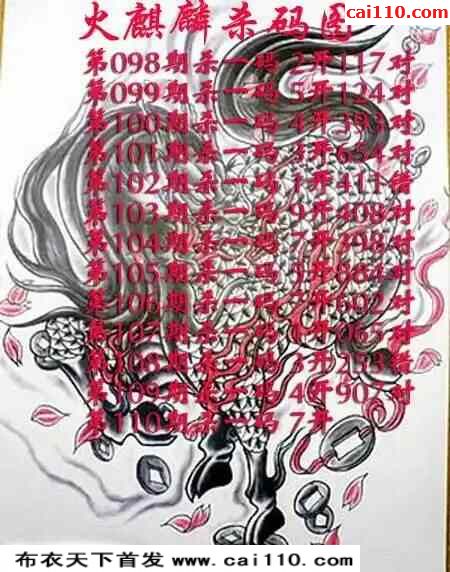 cai110.com
火麒麟杀码图
第098期杀一码 2开117对
第099期杀一码 5开124对
第100期杀一码 4开393对
第101期杀一码 3开654对
第102期杀一码 1开411错
第103期杀一码 9开408对
第104期杀一码 7开 对
第105期杀一码 开884对
第106期杀一码 开602对
第107期杀一码 开065对
第108期杀一码 3开253错
第109期杀一码 4开907对
第110期杀一码 7开
布衣天下首发 www.cai110.com